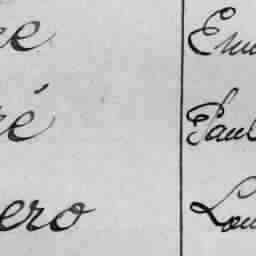 ee Em
é Paul
ero Lou